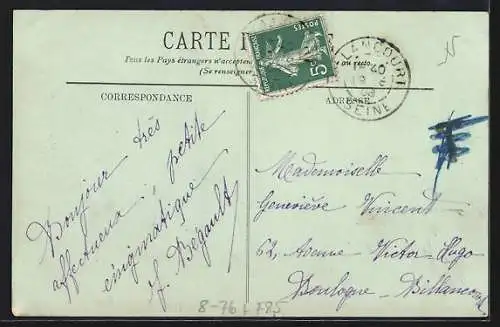 CARTE
Tous les Pays étrangers n'acceptent
(Se renseigner
POSTES
5
LANCOURT
SEINE
CORRESPONDANCE
ADRESSE
Bonjour très
affectueux, petite
énigmatique
J. Bégault
Mademoiselle
Geneviève Vincent
62, Avenue Victor-Hugo
Boulogne-Billancourt
8-76 F85